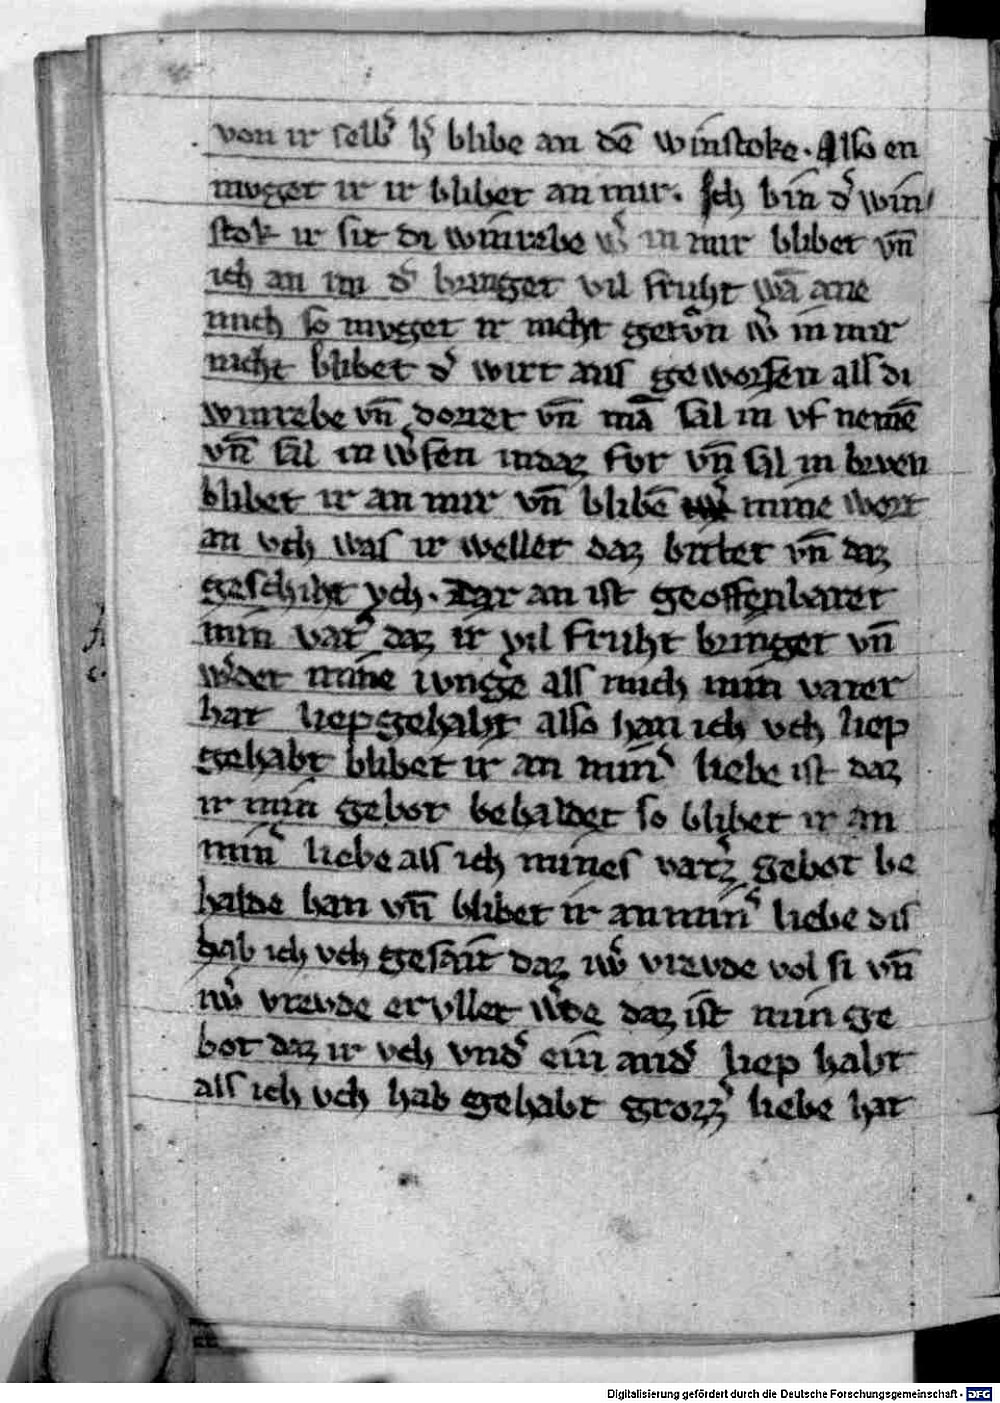 von ir selb͛ si blibe an dē winstoke. Also en
muget ir ir blibet an mir. Ich bin d͛ win
stok ir sit di winrebe w͛ in mir blibet vn̄
ich an im d͛ bringet vil fruht wā ane
mich so muget ir nicht getůn w͛ in mir
nicht blibet d͛ wirt aus geworfen als di
winrebe vn̄ dorret vn̄ mā sal in vf nemē
vn̄ sal in w͛fen in daz for vn̄ sal in bꝛven
blibet ir an mir vn̄ blibē mine wort
an vch was ir wellet daz bittet vn̄ daz
geschiht vch. Dar an ist geoffenbaret
min vat͛ daz ir vil fruht bringet vn̄
w͛det mine iunge͛ als mich min vater
hat liep gehabt also han ich vch liep
gehabt blibet ir an min͛ liebe ist daz
ir min gebot behaldet so blibet ir an
min͛ liebe als ich mines vat͛z gebot be
halde han vn̄ blibet ir an min͛ liebe dis
hab ich vch gesait daz iw͛ vreude vol si vn̄
iw͛ vreude ervllet w͛de daz ist min ge
bot daz ir vch vnd͛ ein and͛ liep habt
als ich vch hab gehabt grozz͛ liebe hat
Digitalisierung gefördert durch die Deutsche Forschungsgemeinschaft - DFG